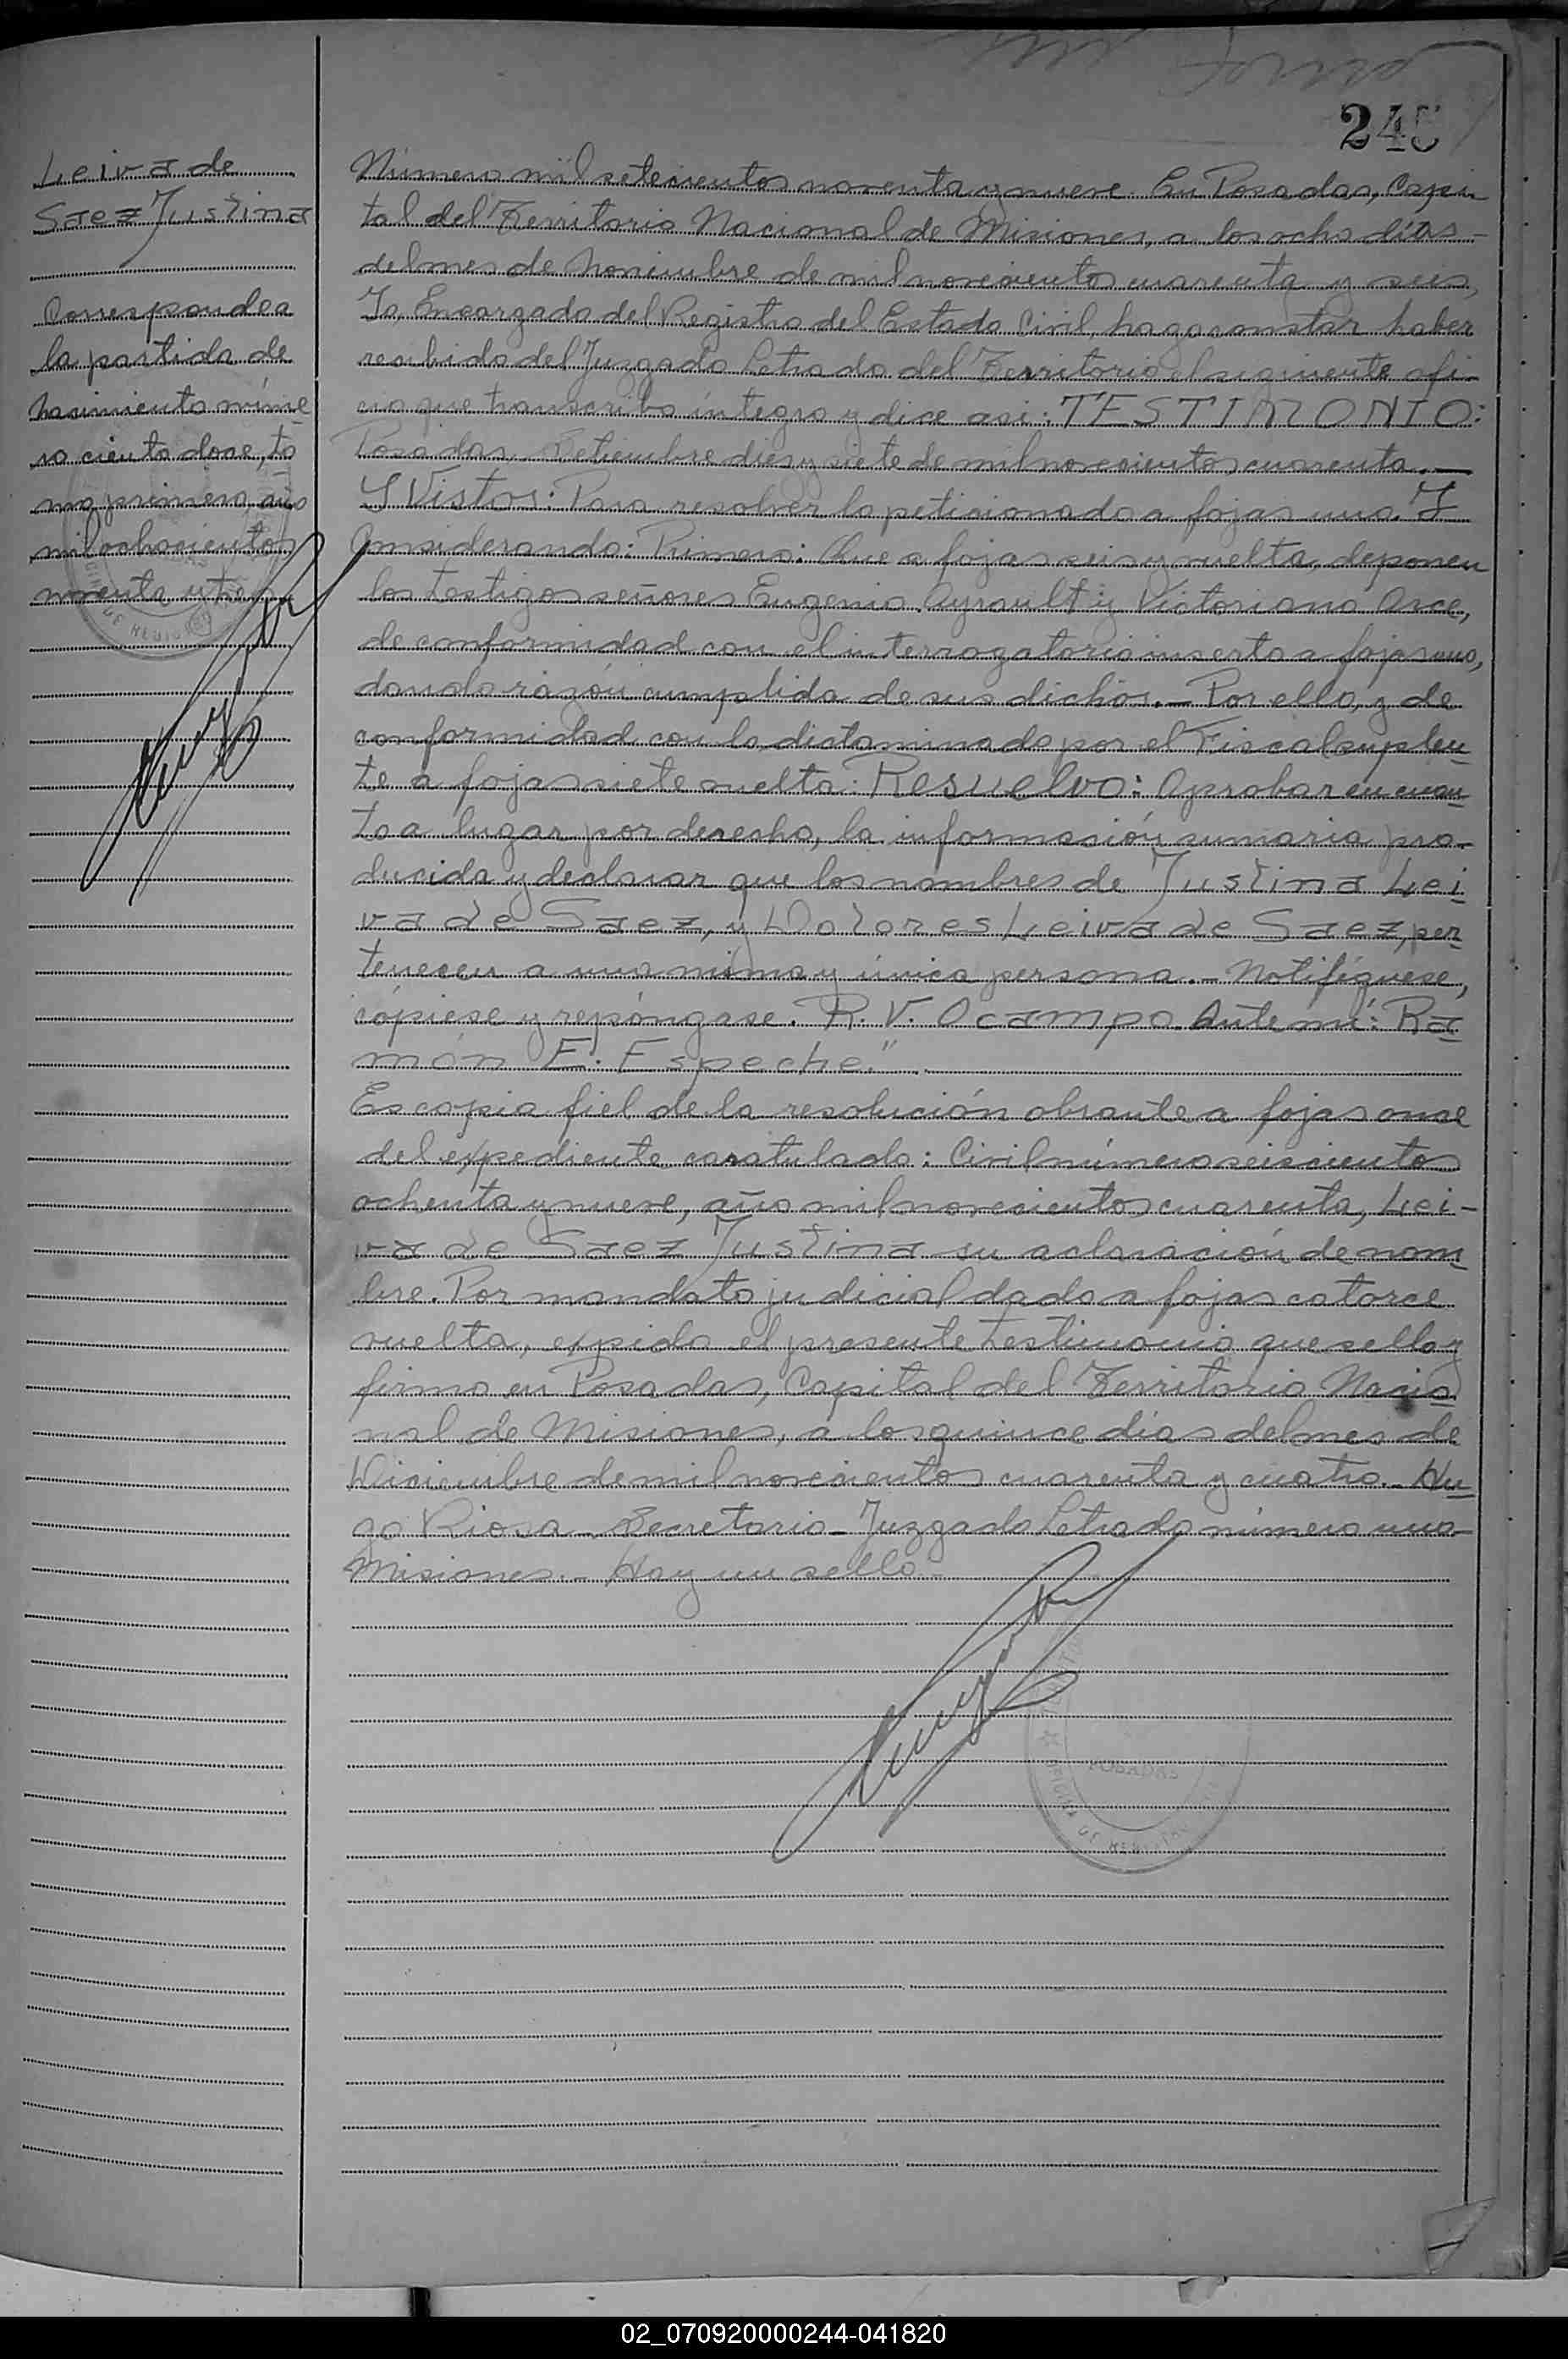 245
Leiva de
Saez Justina
Corresponde a
la partida de
nacimiento núme
ro ciento doce, to
mo primero, año
mil ochocientos
noventa y tres
Número mil setecientos noventa y nueve. En Posadas, Capi
tal del Territorio Nacional de Misiones, a los ocho días -
del mes de Noviembre de mil novecientos cuarenta y seis,
Yo, Encargado del Registro del Estado Civil, hago constar haber
recibido del Juzgado Letrado del Territorio el siguiente ofi-
cio que transcribo íntegro y dice así: TESTIMONIO:
Posadas, Setiembre diez y siete de mil novecientos cuarenta.—
Y Vistos: Para resolver lo peticionado a fojas una. Y
Considerando: Primero: Que a fojas seis y vuelta, deponen
los testigos señores Eugenio Ayrault y Victoriano Arce,
de conformidad con el interrogatorio inserto a fojas uno,
dando razón cumplida de sus dichos.— Por ello, y de
conformidad con lo dictaminado por el Fiscal suplen
te a fojas siete vuelta: Resuelvo: Aprobar en cuan
to a lugar por derecho, la información sumaria pro-
ducida y declarar que los nombres de Justina Lei
va de Saez, y Dolores Leiva de Saez, per
tenecen a una misma y única persona.- Notifíquese,
cópiese y repóngase. R. V. Ocampo. Ante mí: Ra
món E. Espeche."
Es copia fiel de la resolución obrante a fojas once
del expediente caratulado: Civil número seiscientos
ochenta y nueve, año mil novecientos cuarenta, Lei-
va de Saez Justina su aclaración de nom
bre. Por mandato judicial dado a fojas catorce
vuelta, expido el presente testimonio que sello y
firmo en Posadas, Capital del Territorio Nacio
nal de Misiones, a los quince días del mes de
Diciembre de mil novecientos cuarenta y cuatro.- Hu
go Riosa - Secretario - Juzgado Letrado número uno
Misiones.- Hay un sello.-
POSADAS
02_070920000244-041820